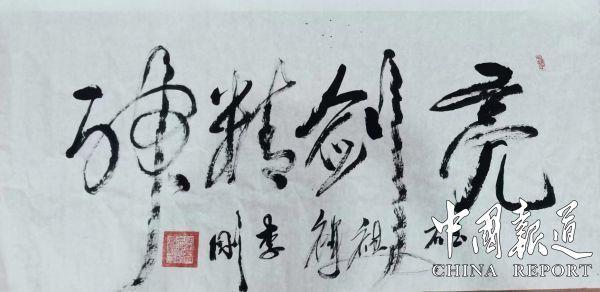 亮剑精神
李剛
中國報道
CHINA REPORT